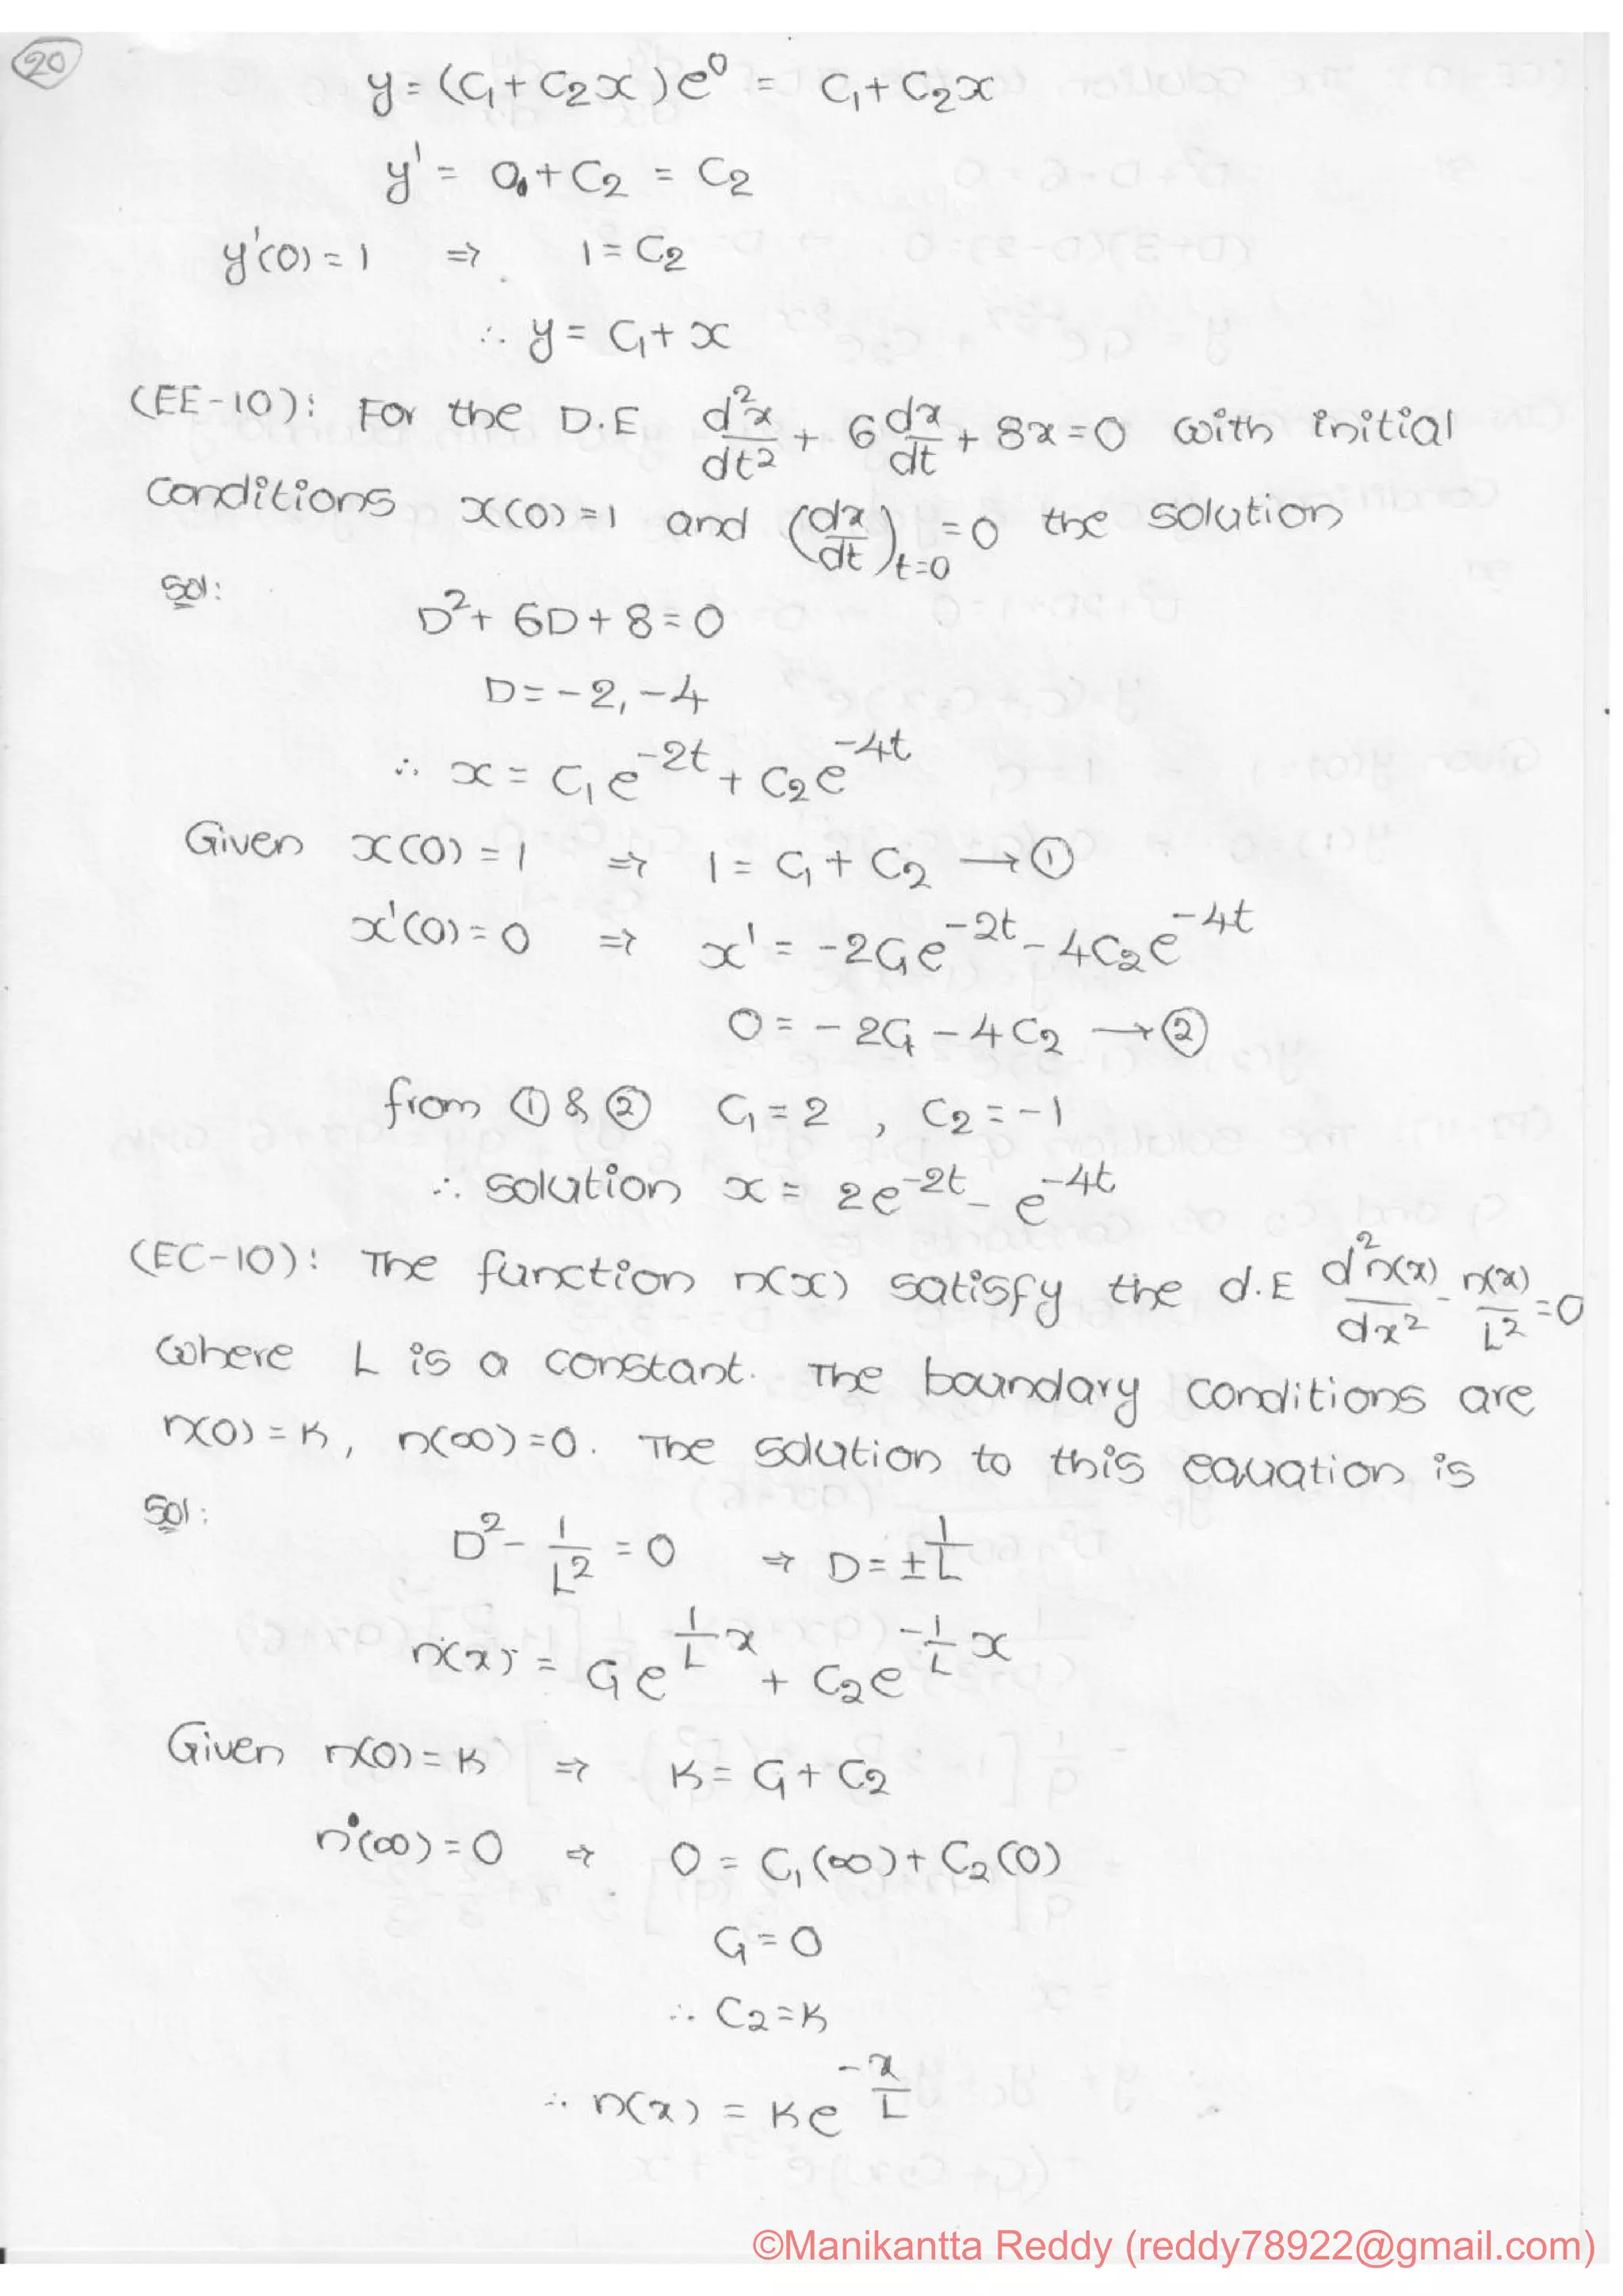 20
y = (C1 + C2x)e^0 = C1 + C2x
y' = 0 + C2 = C2
y'(0) = 1 ⇒ 1 = C2
∴ y = C1 + x
(EE-10): For the D.E d²x/dt² + 6 dx/dt + 8x = 0 with initial
conditions x(0) = 1 and (dx/dt)t=0 = 0 the solution
Sol:
D² + 6D + 8 = 0
D = -2, -4
∴ x = C1 e^-2t + C2 e^-4t
Given x(0) = 1 ⇒ 1 = C1 + C2 → ①
x'(0) = 0 ⇒ x' = -2C1 e^-2t - 4C2 e^-4t
0 = -2C1 - 4C2 → ②
from ① & ② C1 = 2 , C2 = -1
∴ solution x = 2e^-2t - e^-4t
(EC-10): The function n(x) satisfy the d.E d²n(x)/dx² - n(x)/L² = 0
where L is a constant. The boundary conditions are
n(0) = K, n(∞) = 0. The solution to this equation is
Sol:
D² - 1/L² = 0 ⇒ D = ± 1/L
n(x) = C1 e^(1/L x) + C2 e^(-1/L x)
Given n(0) = K ⇒ K = C1 + C2
n(∞) = 0 ⇒ 0 = C1(∞) + C2(0)
C1 = 0
∴ C2 = K
∴ n(x) = K e^(-x/L)
©Manikantta Reddy (reddy78922@gmail.com)